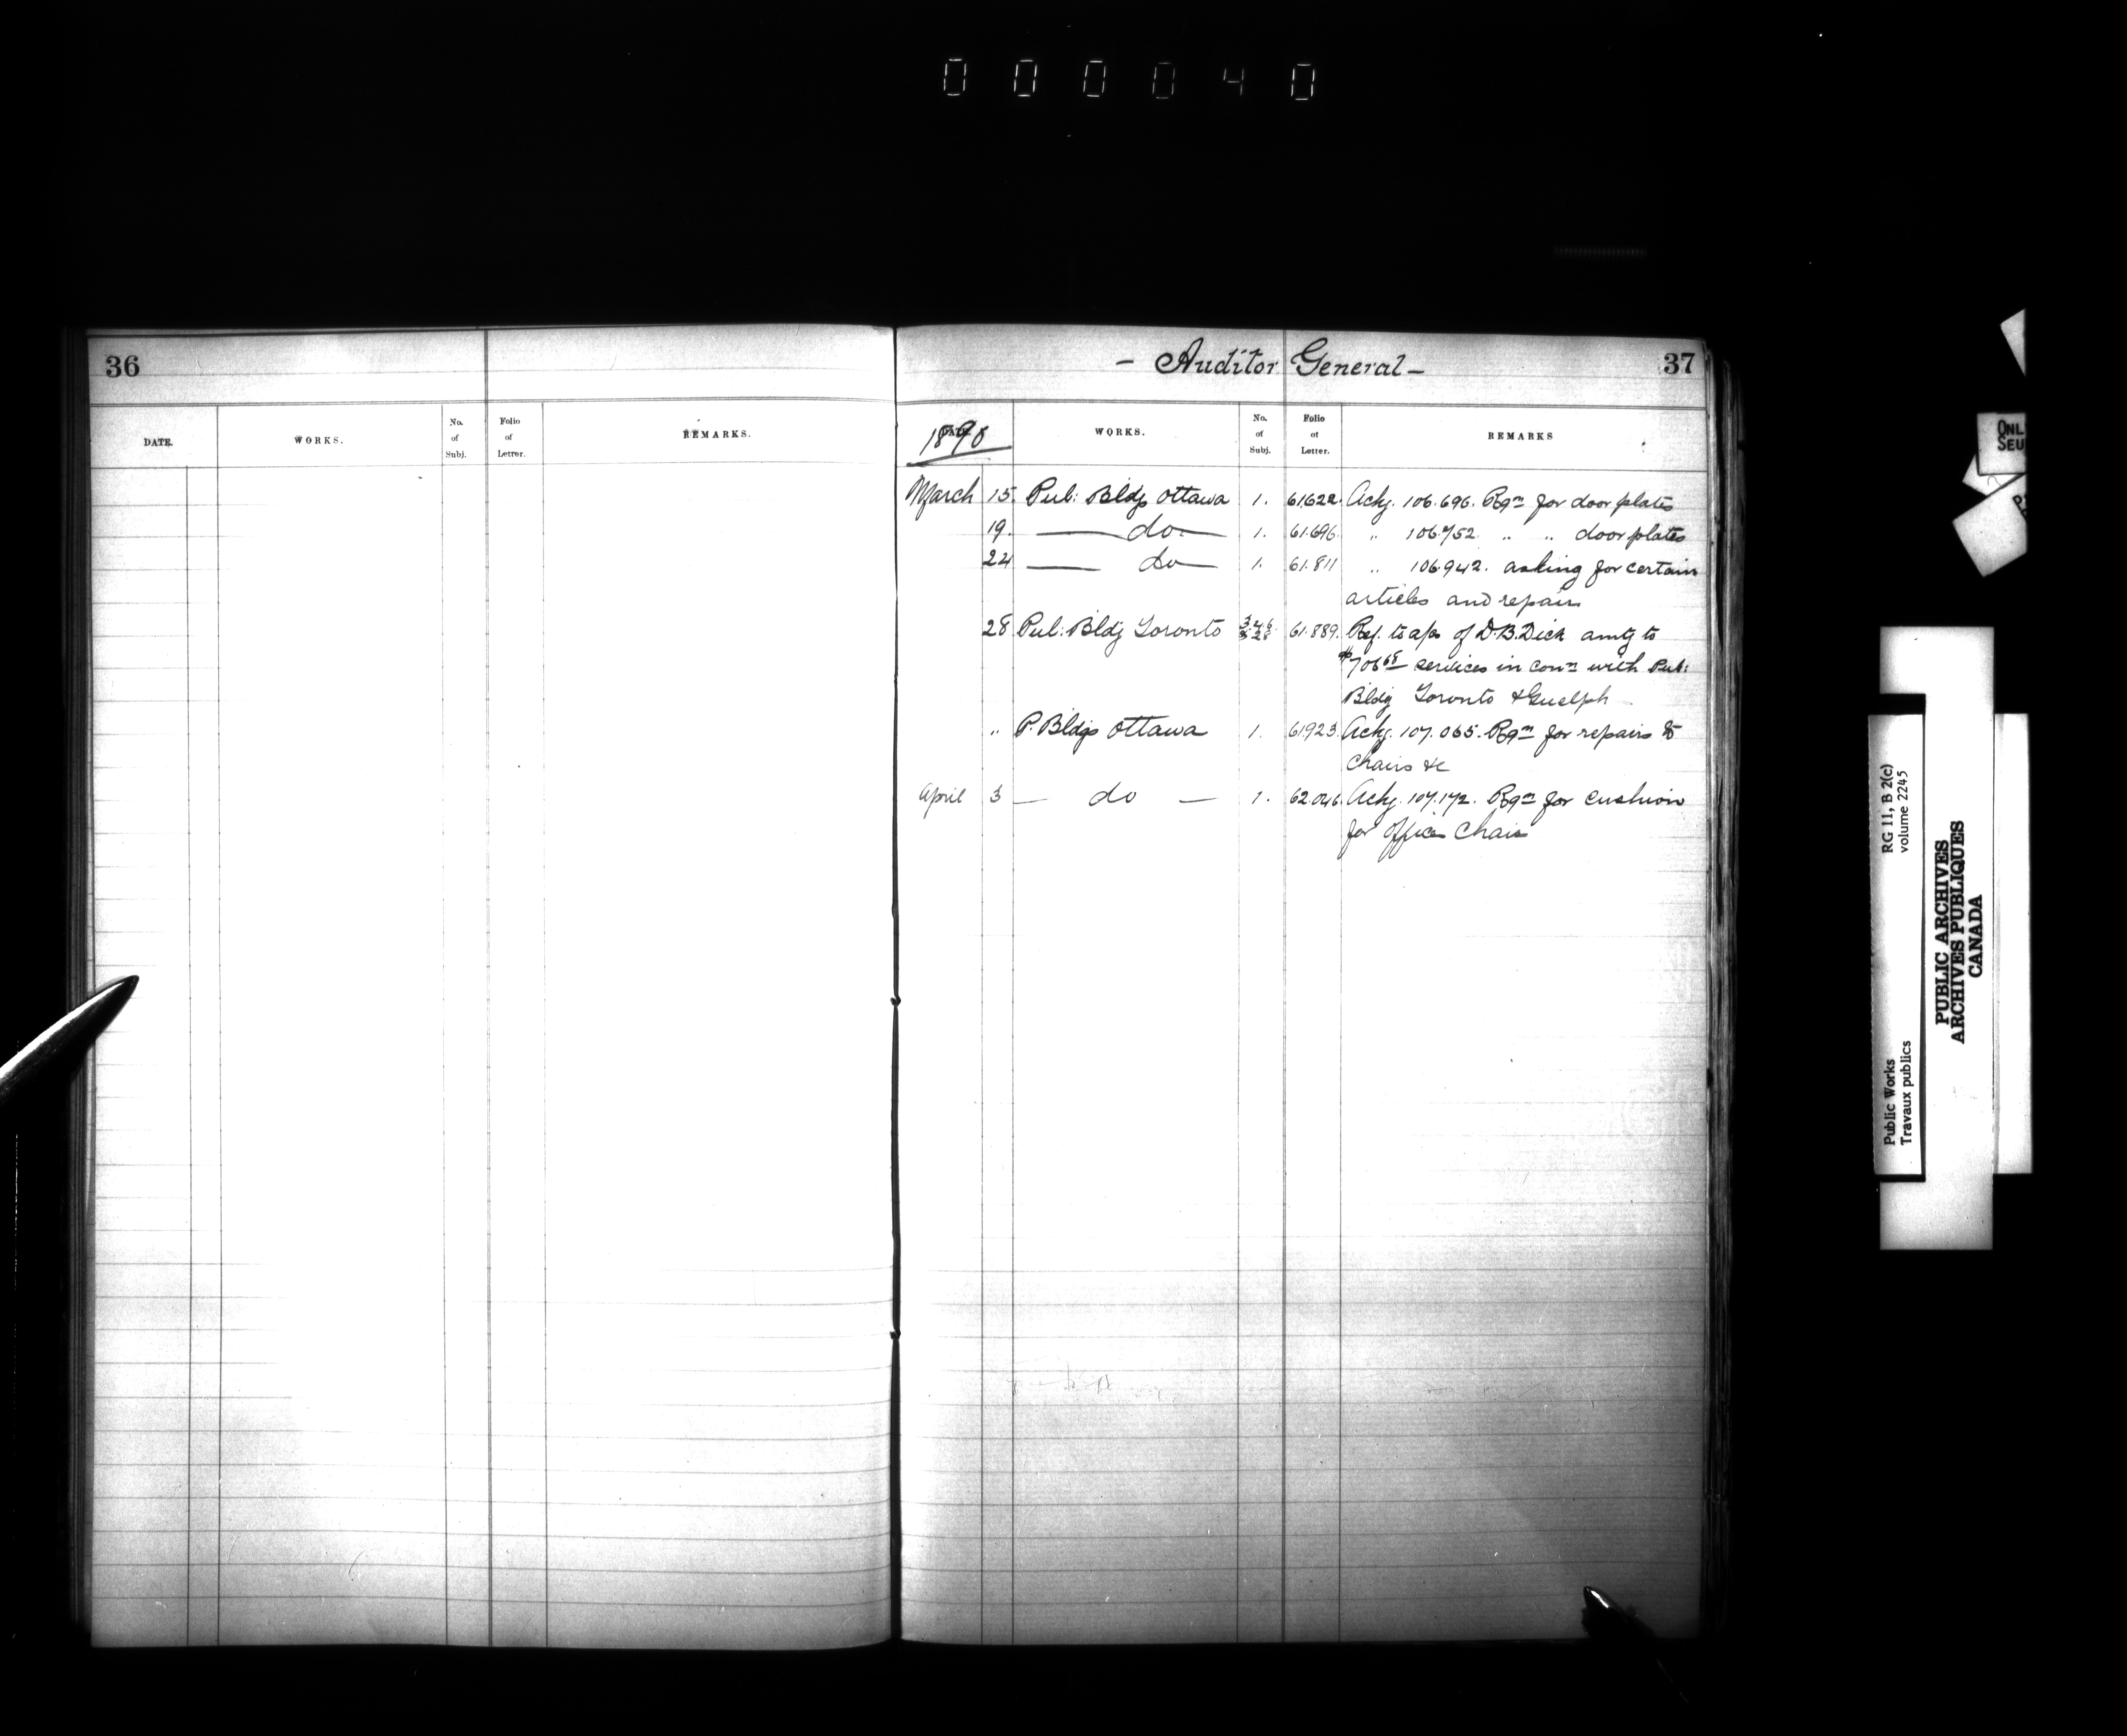 000040
36
DATE. WORKS. No. of Subj. Folio of Letter. REMARKS.
- Auditor General - 37
1890 DATE. WORKS. No. of Subj. Folio of Letter. REMARKS
March 15. Pub: Bldgs Ottawa 1. 61.622. Ackg. 106.696. Rqn for door plates
19. do 1. 61.696. " 106.752. " " door plates
24 do 1. 61.811 " 106.942. asking for certain
articles and repairs
28 Pub: Bldg Toronto 61.889. Ref. to a/cs of D.B. Dick amtg to
$706 68 services in conn with Pub:
Bldg Toronto & Guelph
" P. Bldgs Ottawa 1. 61923. Ackg. 107.065. Rqn for repairs to
chairs &c
April 3 — do — 1. 62.046. Ackg. 107.172. Rqn for cushion
for office chair
ONL
SEU
RG 11, B 2(c)
volume 2245
Public Works
Travaux publics
PUBLIC ARCHIVES
ARCHIVES PUBLIQUES
CANADA